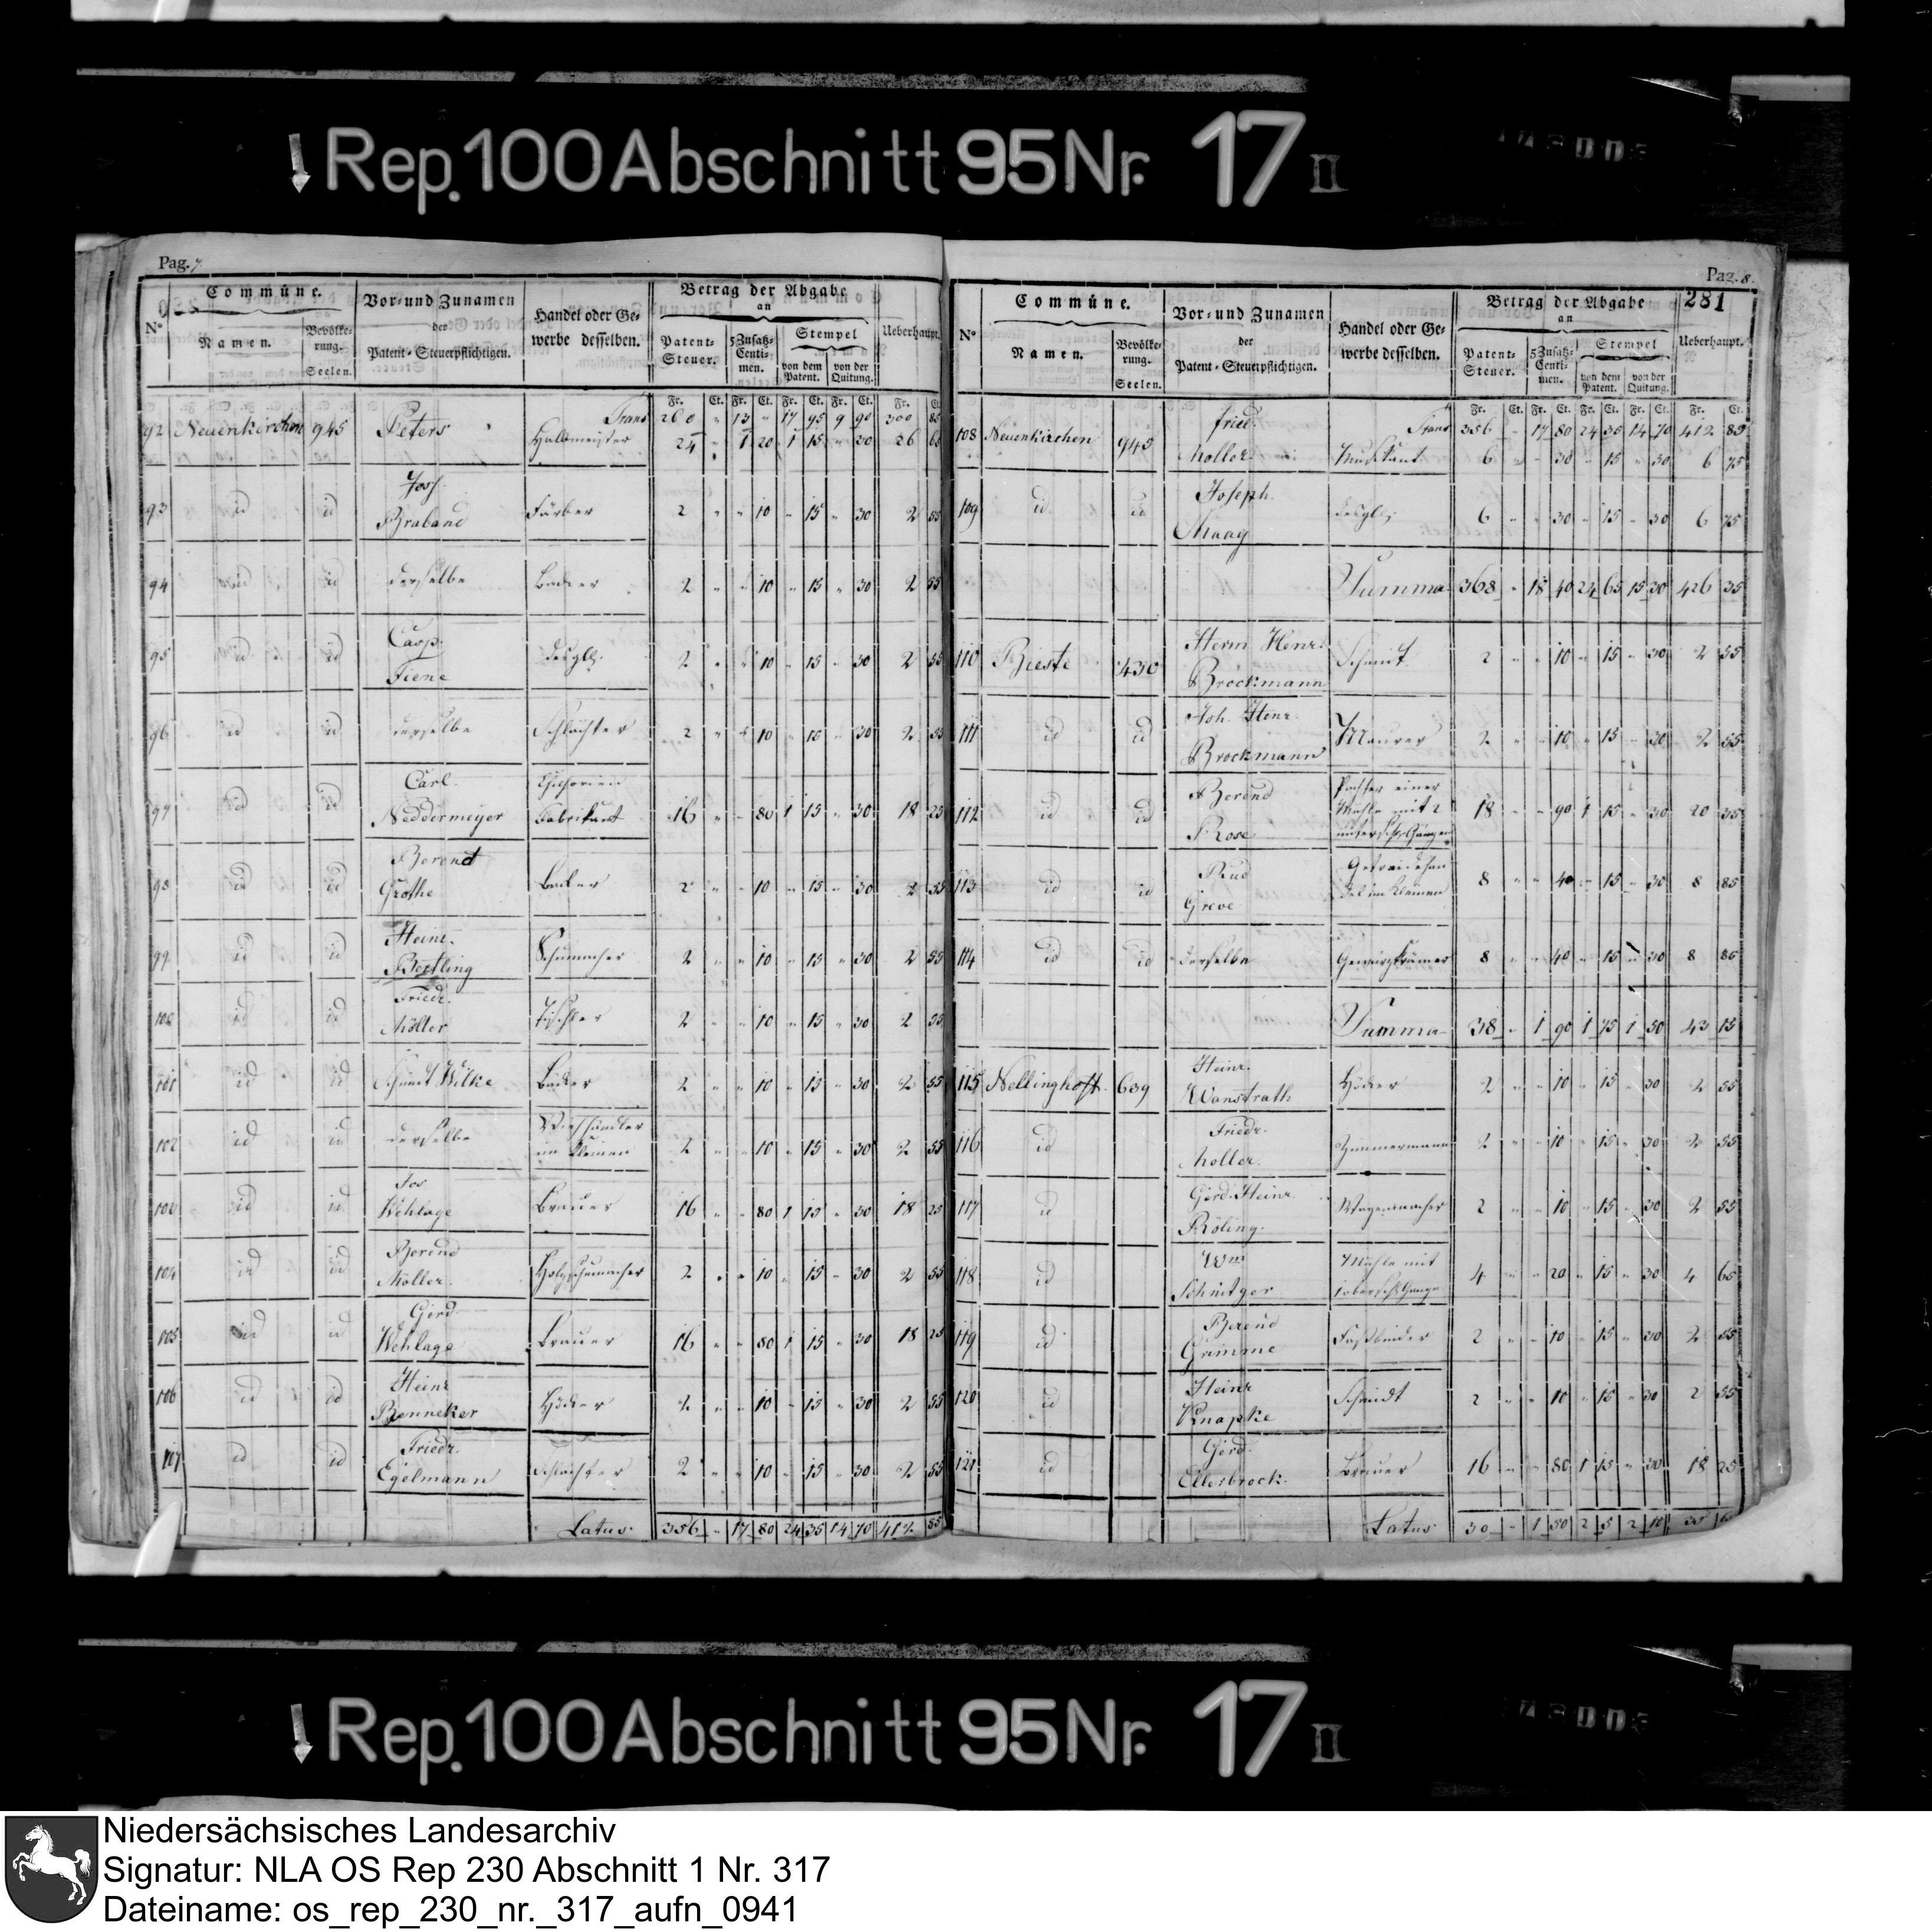 Rep. 100 Abschnitt 95 Nr. 17 II
Pag. 7.
Commüne.
Vor- und Zunamen
der
Patent-Steuerpflichtigen.
Handel oder Ge-
werbe desselben.
Betrag der Abgabe
an
No
Namen.
Bevölke-
rung.
Seelen.
Patent-
Steuer.
5 Zusatz-
Centi-
men.
Stempel
von dem
Patent.
von der
Quitung.
Ueberhaupt.
Fr. Ct. Fr. Ct. Fr. Ct. Fr. Ct. Fr. Ct.
Trans 260 " 13 " 17 95 9 90 300 85
92 Neuenkirchen 945 Peters Halbmeister 24 " 1 20 1 15 " 30 26 65
93 id id Jos. Braband Färber 2 " " 10 " 15 " 30 2 55
94 id id derselbe Bäcker 2 " " 10 " 15 " 30 2 55
95 id id Casp. Fiene desgl. 2 " " 10 " 15 " 30 2 55
96 id id derselbe Schlächter 2 " " 10 " 15 " 30 2 55
97 id id Carl. Neddermeyer Cichorien Fabrikant 16 " " 80 1 15 " 30 18 25
98 id id Berend Grothe 2 " " 10 " 15 " 30 2 55
99 id id Heinr. Bertling Schumacher 2 " " 10 " 15 " 30 2 55
100 id id Friedr. Möller Tischler 2 " " 10 " 15 " 30 2 55
101 id id Schmidt Wilke Bäcker 2 " " 10 " 15 " 30 2 55
102 id id derselbe Viehhändler im Kleinen 2 " " 10 " 15 " 30 2 55
103 id id Jos Wehlage Brauer 16 " " 80 1 15 " 30 18 25
104 id id Berend Möller Holzschumacher 2 " " 10 " 15 " 30 2 55
105 id id Gerd Wehlage Brauer 16 " " 80 1 15 " 30 18 25
106 id id Heinr Benneker Höcker 2 " " 10 " 15 " 30 2 55
107 id id Friedr. Egelmann Schlächter 2 " " 10 " 15 " 30 2 55
Latus 356 " 17 80 24 35 14 70 412 85
Pag. 8.
281
Commüne.
Vor- und Zunamen
der
Patent-Steuerpflichtigen.
Handel oder Ge-
werbe desselben.
Betrag der Abgabe
an
No
Namen.
Bevölke-
rung.
Seelen.
Patent-
Steuer.
5 Zusatz-
Centi-
men.
Stempel
von dem
Patent.
von der
Quitung.
Ueberhaupt.
Fr. Ct. Fr. Ct. Fr. Ct. Fr. Ct. Fr. Ct.
Trans 356 " 17 80 24 35 14 70 412 85
108 Neuenkirchen 945 Fried. Moller Musikant 6 " " 30 " 15 " 30 6 75
109 id id Joseph Maag desgl. 6 " " 30 " 15 " 30 6 75
Summa 368 " 18 40 24 65 15 30 426 35
110 Bieste 430 Herm Henr. Brockmann Schmidt 2 " " 10 " 15 " 30 2 55
111 id id Joh. Henr. Brockmann Maurer 2 " " 10 " 15 " 30 2 55
112 id id Berend Rose Pächter einer Mühle mit 2 unterschl. Gängen 18 " " 90 1 15 " 30 20 35
113 id id Rud Greve Getreidehandel im Kleinen 8 " " 40 " 15 " 30 8 85
114 id id derselbe Gewürzkrämer 8 " " 40 " 15 " 30 8 85
Summa 38 " 1 90 1 75 1 50 43 15
115 Nellinghoff 639 Heinr. Wanstrath Höcker 2 " " 10 " 15 " 30 2 55
116 id Friedr. Moller Zimmermann 2 " " 10 " 15 " 30 2 55
117 id Gerd. Heinr. Röling. Wagenmacher 2 " " 10 " 15 " 30 2 55
118 id Wm Schnitger Mühle mit 1 oberschl. Gange 4 " " 20 " 15 " 30 4 65
119 id Berend Grimme Faßbinder 2 " " 10 " 15 " 30 2 55
120 id Heinr Knapke Schmidt 2 " " 10 " 15 " 30 2 55
121 id Gerd. Ellerbrock Brauer 16 " " 80 1 15 " 30 18 25
Latus 30 " 1 50 2 5 2 10 35 65
Rep. 100 Abschnitt 95 Nr. 17 II
Niedersächsisches Landesarchiv
Signatur: NLA OS Rep 230 Abschnitt 1 Nr. 317
Dateiname: os_rep_230_nr._317_aufn_0941